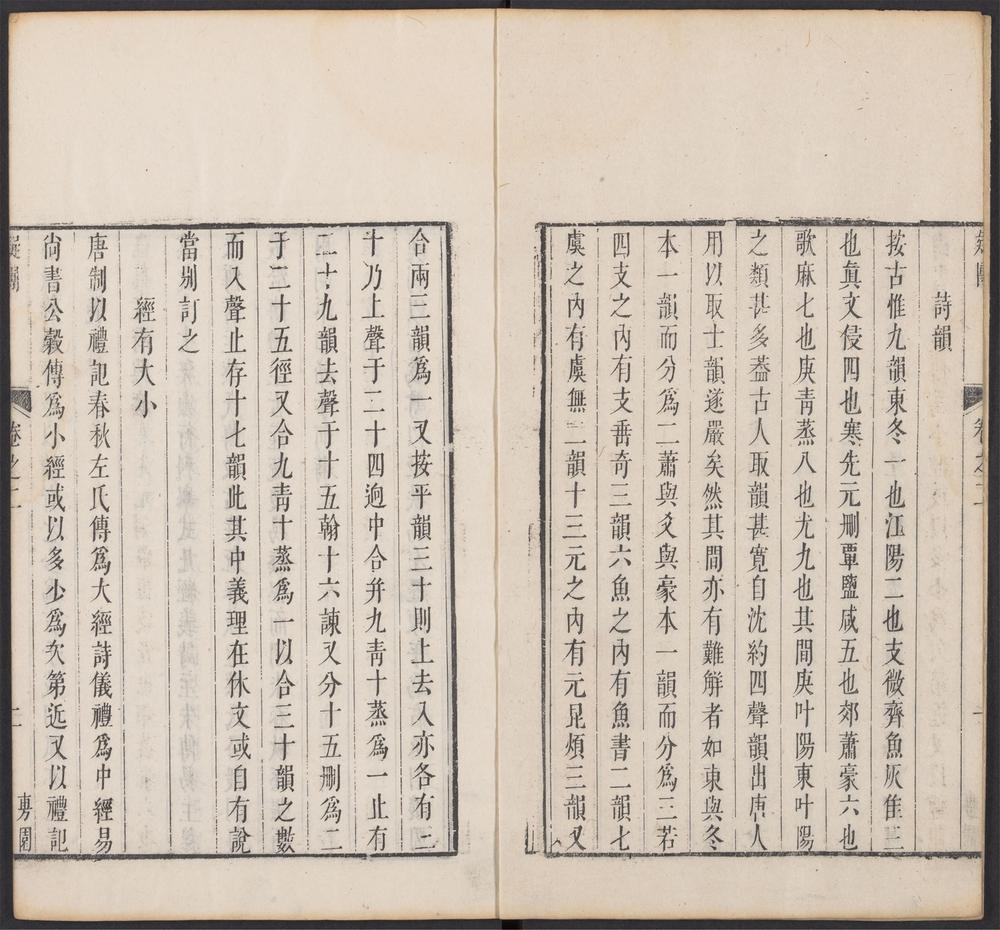 詩韻
按古惟九韻東冬一也江陽二也支微齊魚灰佳三
也眞文侵四也寒先元刪覃鹽咸五也郊蕭豪六也
歌麻七也庚靑蒸八也尤九也其間庚叶陽東叶陽
之類甚多葢古人取韻甚寬自沈約四聲韻出唐人
用以取士韻遂嚴矣然其間亦有難解者如東與冬
本一韻而分爲二蕭與爻與豪本一韻而分爲三若
四支之內有支垂奇三韻六魚之內有魚書二韻七
虞之內有虞無二韻十三元之內有元昆煩三韻又
合兩三韻爲一又按平韻三十則上去入亦各有三
十乃上聲于二十四逈中合并九靑十蒸爲一止有
二十九韻去聲于十五翰十六諫又分十五刪爲二
于二十五徑又合九靑十蒸爲一以合三十韻之數
而入聲止存十七韻此其中義理在休文或自有說
當別訂之
經有大小
唐制以禮記春秋左氏傳爲大經詩儀禮爲中經易
尙書公穀傳爲小經或以多少爲次第近又以禮記
卷之二
二